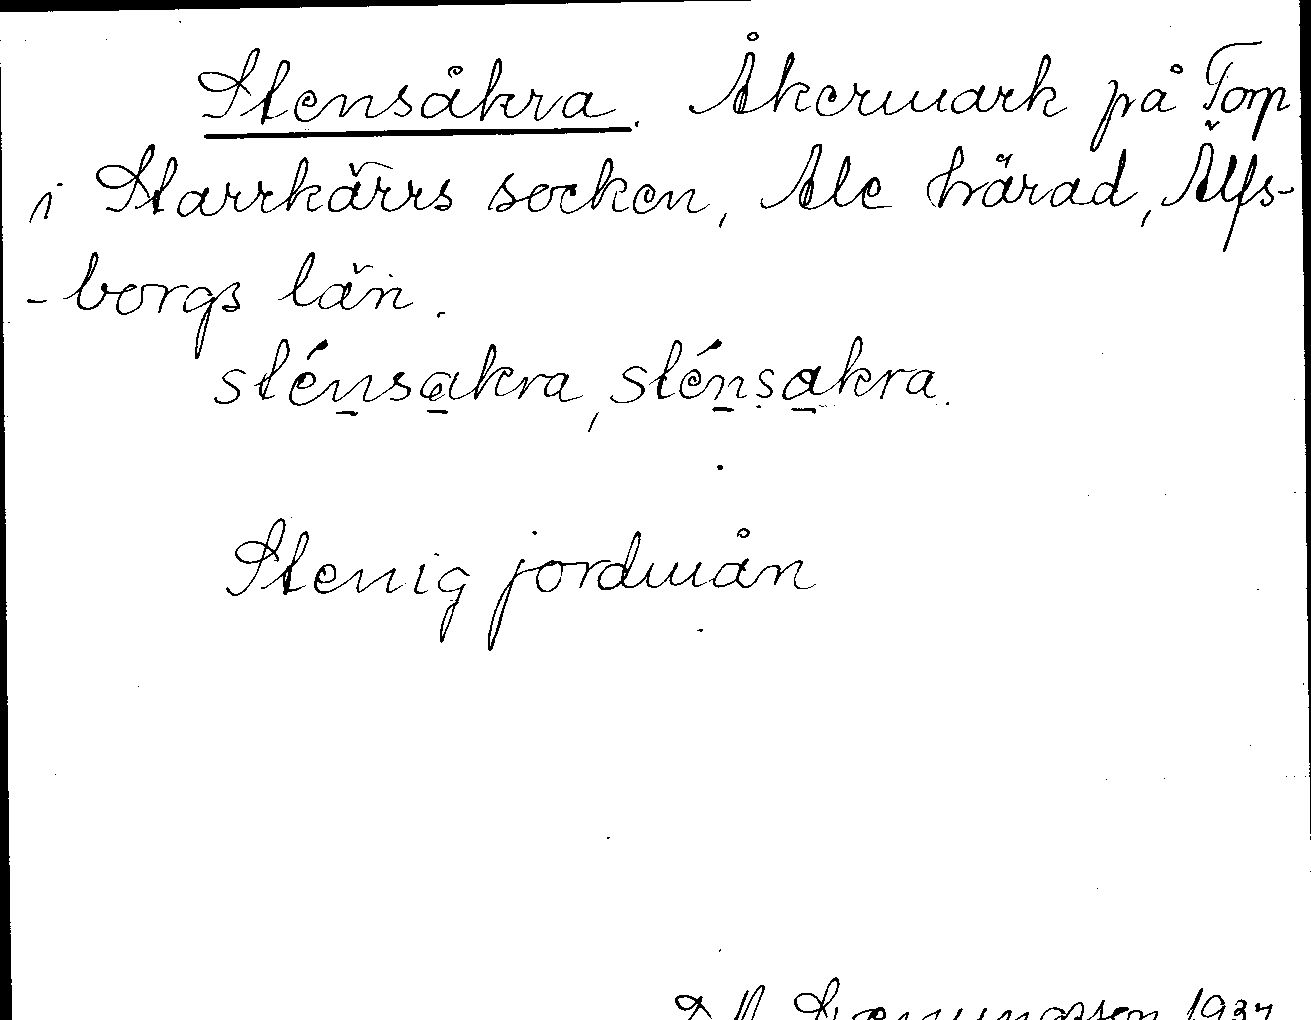 Stensåkra. Åkermark på Torp
i Starrkärrs socken, Ale härad, Älfs-
-borgs län.
sténsakra, sténsakra.
Stenig jordmån
1937